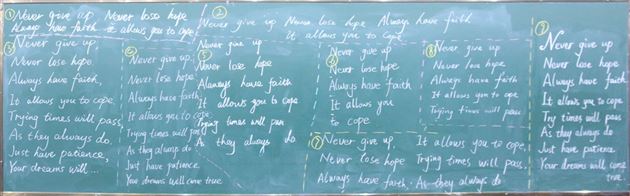 ① Never give up Never lose hope
Always have faith It allows you to cope
② Never give up Never lose hope Always have faith
It allows you to cope
③ Never give up,
Never lose hope.
Always have faith,
It allows you to cope.
Trying times will pass,
As they always do.
Just have patience,
Your dreams will...
Never give up,
Never lose hope.
Always have faith,
It allows you to cope.
Trying times will pass
As they always do
Just have patience.
Your dreams will come true
Never give up
Never lose hope
Always have faith
It allows you to cope
Trying times will pass
As they always do
Never give up
Never lose hope
Always have faith
It allows you
to cope
⑧ Never give up
Never lose hope
Always have faith
It allows you to cope
Trying times will pass
⑦ Never give up,
Never lose hope
Always have faith,
It allows you to cope,
Trying times will pass.
As they always do
Never give up
Never lose hope
Always have faith
It allows you to cope
Try times will pass
As they always do
Just have patience
Your dreams will come
true